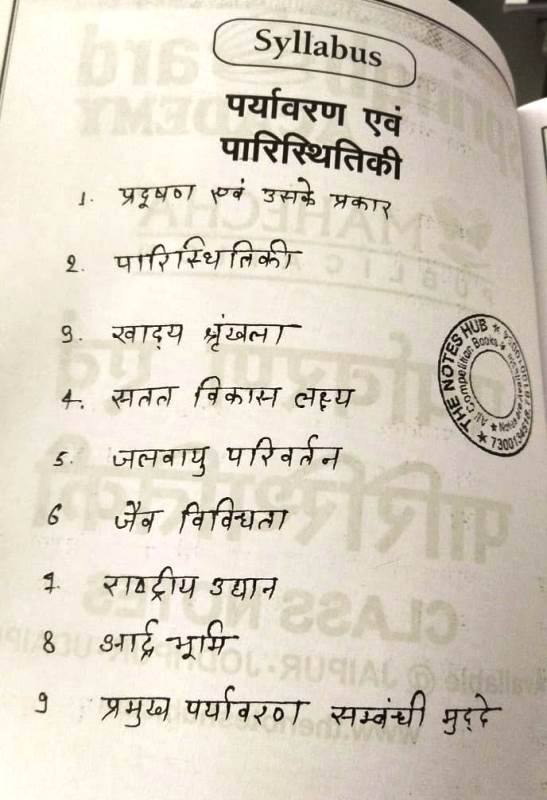 Syllabus
पर्यावरण एवं
पारिस्थितिकी
1. प्रदूषण एवं उसके प्रकार
2. पारिस्थितिकी
3. खाद्य श्रृंखला
4. सतत विकास लक्ष्य
5. जलवायु परिवर्तन
6 जैव विविधता
7. राष्ट्रीय उद्यान
8 आर्द्र भूमि
9 प्रमुख पर्यावरण सम्बंधी मुद्दे
THE NOTES HUB
All Competition Books